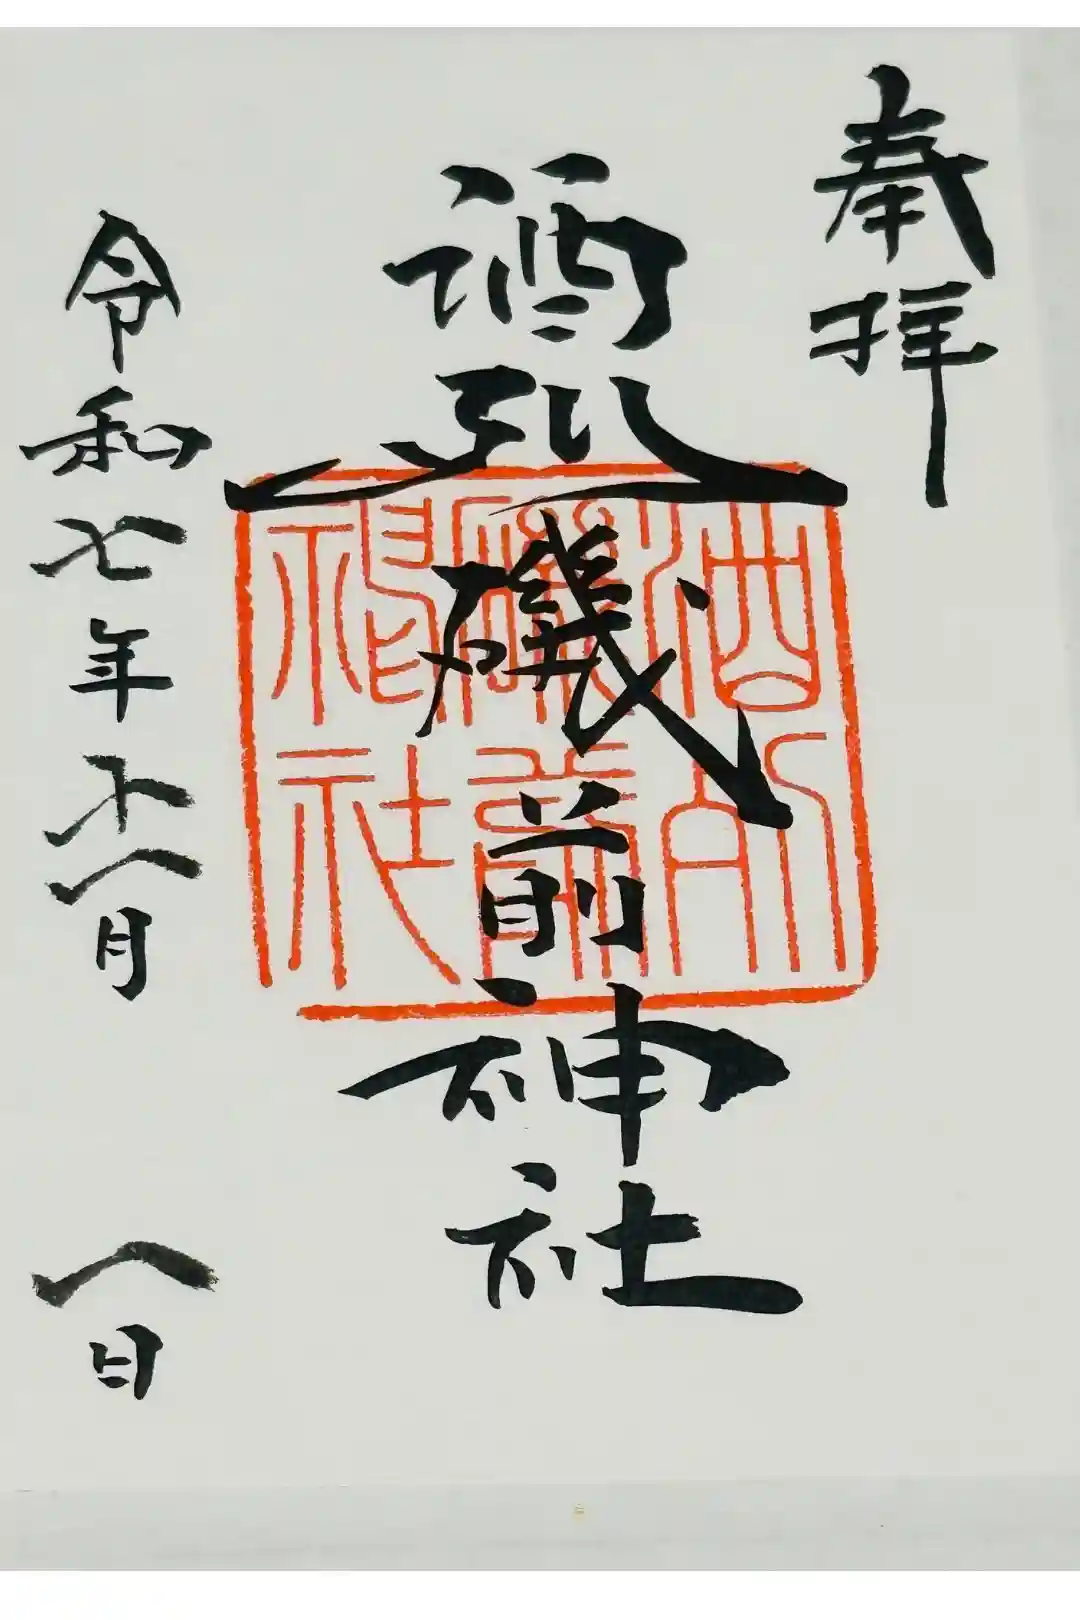 奉拝
酒列磯前神社
令和七年 月 八日
酒列
磯前
神社